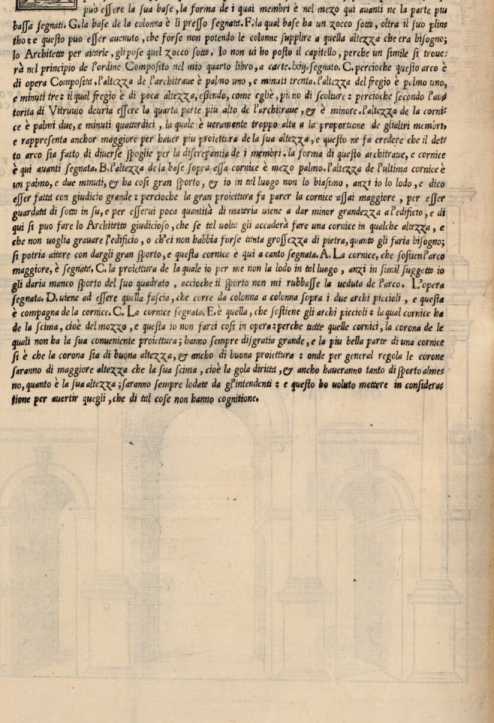 può essere la sua base, la forma de i quai membri è nel mezo qui auanti ne la parte piu
bassa segnati. G. la base de la colonna è li presso segnata. F. la qual base ha un zocco sotto, oltra il suo plin
tho: e questo può esser auenuto, che forse non potendo le colonne supplire a quella altezza che era bisogno;
lo Architetto per aitarle, gli pose quel zocco sotto. Io non ui ho posto il capitello, perche un simile si troue:
rà nel principio de l'ordine Composito nel mio quarto libro, a carte. segnato. C. percioche questo arco è
di opera Composita. l'altezza de l'architraue è palmo uno, e minuti trenta. l'altezza del fregio è palmo uno,
e minuti tre: il qual fregio è di poca altezza, essendo, come egli è, pieno di scolture: percioche secondo l'au
torita di Vitruuio deuria essere la quarta parte piu alto de l'architraue, & è minore. l'altezza de la corni
ce è palmi due, e minuti quattordici, la quale è ueramente troppo alta a la proportione de gli altri membri,
e rappresenta anchor maggiore per hauer piu proiettura de la sua altezza, e questo ne fa credere che il det
to arco sia fatto di diuerse spoglie per la discrepantia de i membri. la forma di questo architraue, e cornice
è qui auanti segnata. B. l'altezza de la base sopra essa cornice è mezo palmo. l'altezza de l'ultima cornice è
un palmo, e due minuti, & ha cosi gran sporto, & io in tel luogo non lo biasimo, anzi io lo lodo, e dico
esser fatta con giudicio grande: perche la gran proiettura fa parer la cornice assai maggiore, per esser
guardata di sotto in su, e per esserui poca quantità di materia uiene a dar minor grandezza a l'edificio, e di
qui si puo fare lo Architetto giudicioso, che se tal uolta gli accaderà fare una cornice in qualche altezza, e
che non uoglia grauare l'edificio, o ch'ei non habbia forse tanta grossezza di pietra, quanto gli faria bisogno;
si potria aitare con dargli gran sporto, e questa cornice è qui a canto segnata. A. La cornice, che sostien l'arco
maggiore, è segnata. C. la proiettura de la quale io per me non la lodo in tel luogo, anzi in simil suggetto io
gli daria manco sporto del suo quadrato, accioche il sporto non mi rubbasse la ueduta de l'arco. L'opera
segnata. D. uiene ad essere quella fascia, che corre da colonna a colonna sopra i due archi piccioli, e questa
è compagna de la cornice. C. La cornice segnata. E. è quella, che sostiene gli archi piccioli: la qual cornice ha
de la scima, cioè del mozzo, e questa io non farei cosi in opera: perche tutte quelle cornici, la corona de le
quali non ha la sua conueniente proiettura; hanno sempre disgratia grande, e la piu bella parte di una cornice
si è che la corona sia di buona altezza, & ancho di buona proiettura: onde per general regola le corone
saranno di maggiore altezza che la sua scima, cioè la gola diritta, & ancho haueranno tanto di sporto almes
no, quanto è la sua altezza; saranno sempre lodate da gl'intendenti: e questo ho uoluto mettere in consideras
tione per auertir quegli, che di tal cose non hanno cognitione.